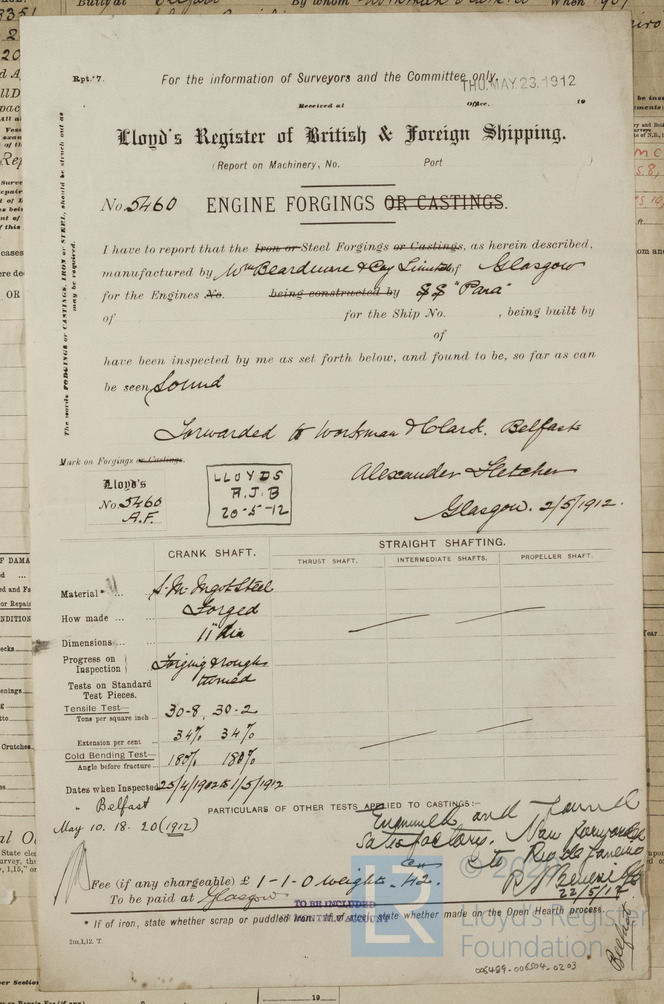 Rpt. 7.
For the information of Surveyors and the Committee only.
THU. MAY. 23. 1912
Received at
Office,
19
Lloyd's Register of British & Foreign Shipping.
(Report on Machinery, No.
Port
)
No. 5460
ENGINE FORGINGS OR CASTINGS.
The words FORGINGS or CASTINGS, IRON or STEEL, should be struck out as
may be required.
I have to report that the Iron or Steel Forgings or Castings, as herein described,
manufactured by Wm Beardmore & Coy Limited of Glasgow
for the Engines No. being constructed by SS "Para"
of for the Ship No. , being built by
of
have been inspected by me as set forth below, and found to be, so far as can
be seen, Sound
Forwarded to Workman & Clark. Belfast
Mark on Forgings or Castings.
Lloyd's
No. 5460
A.F.
LLOYDS
A.J.B
20-5-12
Alexander Fletcher
Glasgow. 2/5/1912.
CRANK SHAFT.
STRAIGHT SHAFTING.
THRUST SHAFT.
INTERMEDIATE SHAFTS.
PROPELLER SHAFT.
Material* ... S.M. Ingot Steel
How made ... Forged
Dimensions ... 11" dia
Progress on
Inspection
Forging & rough
turned
Tests on Standard
Test Pieces.
Tensile Test—
Tons per square inch
30-8, 30-2
Extension per cent
34% 34%
Cold Bending Test—
Angle before fracture
180% 180%
Dates when Inspected 25/4/1912 to 1/5/1912
" Belfast
May 10. 18. 20 (1912)
PARTICULARS OF OTHER TESTS APPLIED TO CASTINGS:—
Examined and found
satisfactory. Now forwarded
to Rio de Janeiro
22/5/12
Belfast
Fee (if any chargeable) £ 1-1-0 weight - 42.
To be paid at Glasgow
TO BE INCLUDED
IN MONTHLY ACCOUNT
* If of iron, state whether scrap or puddled iron. If of steel, state whether made on the Open Hearth process.
2m,1,12. T.
LR
© 2020
Lloyd's Register
Foundation
005489-005504-0203